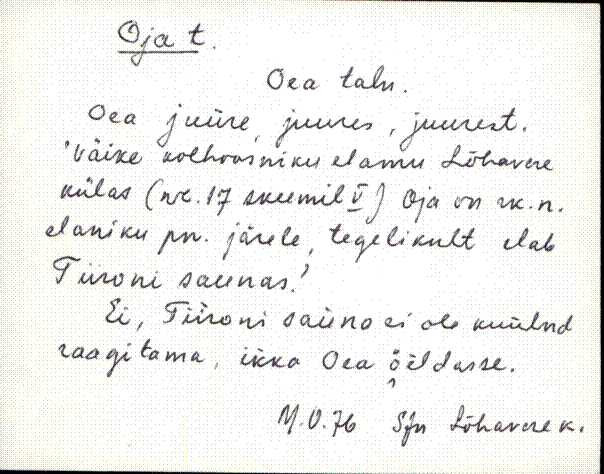 Oja t.
Oea talu.
Oea juure, juures, juurest.
'Väike kolhoosniku elamu Lõhavere
külas (nr. 17 skeemil V) Oja on rk.n.
elaniku pn. järele, tegelikult elab
Tiironi saunas.'
Ei, Tiironi sauno ei ole kuulnd
raagitama, ikka Oea õeldasse.
M.O.76 Sjn Lõhavere k.